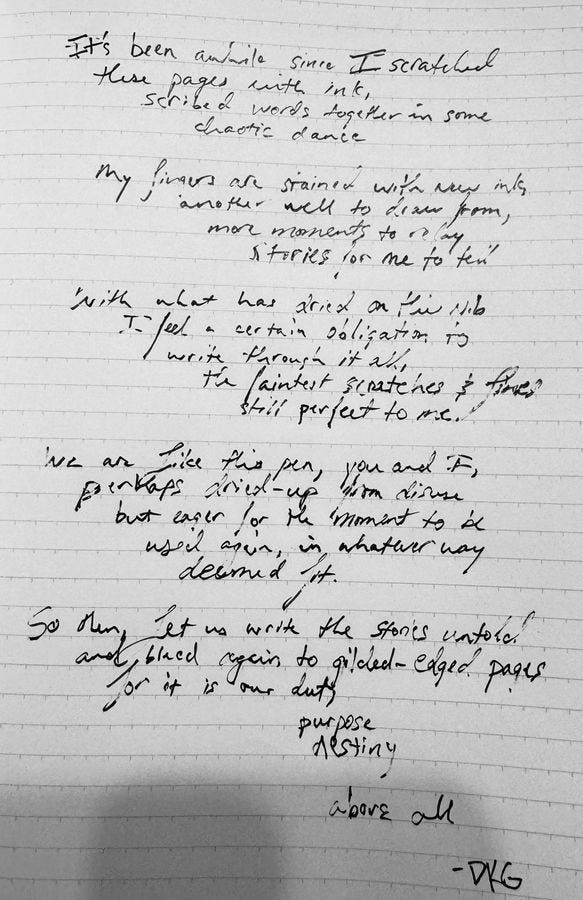 It's been awhile since I scratched
these pages with ink,
scribed words together in some
chaotic dance
My fingers are stained with new ink,
another well to draw from,
more moments to relay
stories for me to tell
with what has dried on this nib
I feel a certain obligation to
write through it all,
the faintest scratches &
still perfect to me.
We are like this pen, you and I,
perhaps dried-up from disuse
but eager for the moment to be
used again, in whatever way
deemed fit.
So then, let us write the stories untold
and bleed again to gilded-edged pages
for it is our duty
purpose
destiny
above all
-DKG